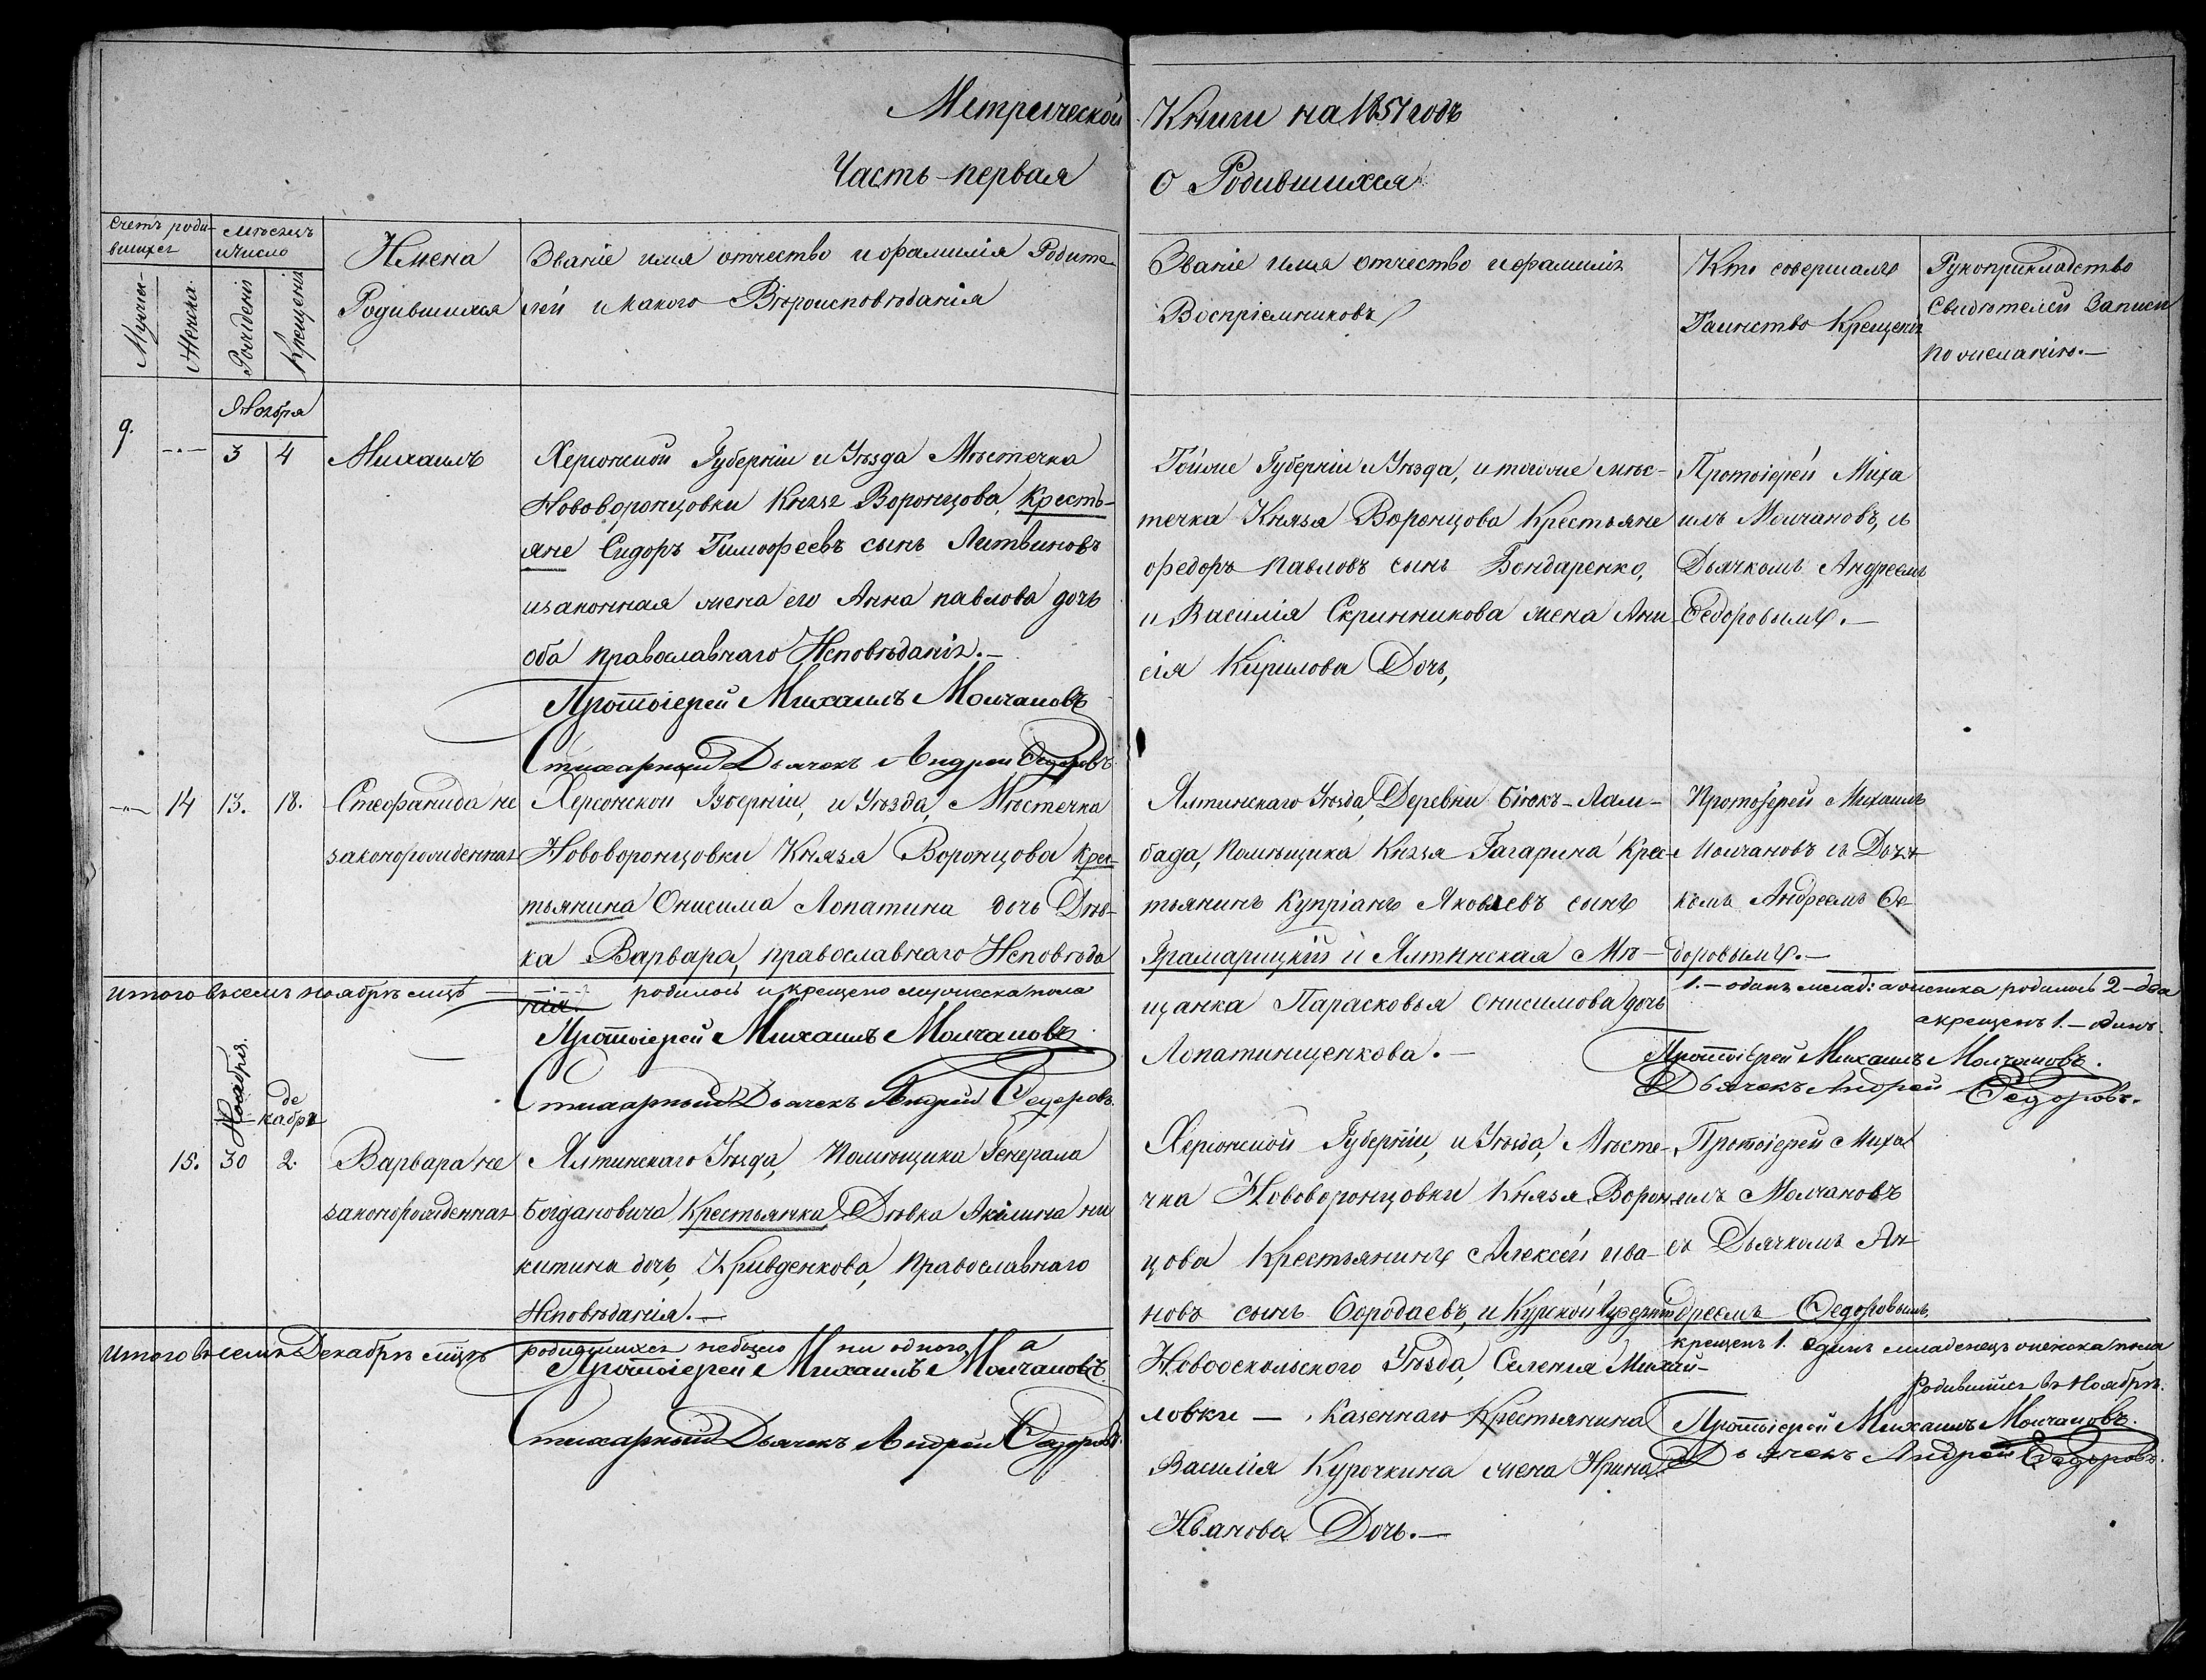 Метрической Книги на 1851 годъ
Часть первая о Родившихся
Счетъ роди-
вшихся
Мужеск.
Женска.
Мѣсяцъ
и число
Рожденія
Крещенія
Имена
Родившихся
Званіе имя отчество и фамилія Родите-
лей и какого Вѣроисповѣданія
Званіе имя отчество и фамилія
Воспріемниковъ
Кто совершалъ
Таинство Крещенія
Рукоприкладство
Свидѣтелей Записи
по желанію.—
Ноября
9. 3 4
Михаилъ
Херсонской Губерніи и Уѣзда Мѣстечка
Нововоронцовки Князя Воронцова, Кресть-
яне Сидоръ Тимофеевъ сынъ Литвиновъ
изаконная жена его Анна павлова дочь
оба православнаго Исповѣданія.—
Протоіерей Михаилъ Молчановъ
Стихарный Дьячекъ Андрей Федоровъ
Тойже Губерніи и Уѣзда, и тогоже мѣс-
течка Князя Воронцова Крестьяне
Федоръ павловъ сынъ Бондаренко,
и Василія Скринникова жена Ани-
сія Кирилова Дочь,
Протоіерей Миха
илъ Молчановъ, съ
Дьячкомъ Андреемъ
Федоровымъ.—
14 13. 18.
Стефанида не
законорожденная
Херсонской Губерніи, и Уѣзда, Мѣстечка
Нововоронцовки Князя Воронцова Крес-
тьянина Онисима Лопатина дочь Дѣв-
ка Варвара, православнаго Исповѣда
нія.
Протоіерей Михаилъ Молчановъ
Стихарный Дьячекъ Андрей Федоровъ.
Ялтинскаго Уѣзда, Деревни Біюкъ-Лам-
бада, Помѣщика Князя Гагарина Крес-
тьянинъ Купріанъ Яковлевъ сынъ
Грамарицкій и Ялтинская Мѣ-
щанка Парасковья Онисимова дочь
Лопатинщенкова.—
Протоіерей Михаилъ
Молчановъ съ Дьяч-
комъ Андреемъ Фе
доровымъ.—
Итого всемъ ноябрѣ мцѣ родилось и крещено мужеска пола
1.—одинъ млад: а женска родилось 2—два
а крещенъ 1.—одинъ.
Протоіерей Михаилъ Молчановъ.
Дьячекъ Андрей Федоровъ.
Ноября.
де
кабря
15. 30 2.
Варвара не
законорожденная
Ялтинскаго Уѣзда, Помѣщика Генерала
Богдановича Крестьянка Дѣвка Акилина ни
китина дочь, Кривденкова, Православнаго
Исповѣданія.—
Херсонской Губерніи, и Уѣзда, Мѣсте-
чка Нововоронцовки Князя Ворон-
цова Крестьянинъ Алексей ива-
новъ сынъ Бородаевъ, и Курской Губерніи
Новооскольского Уѣзда, Селенія Михай-
ловки — Казеннаго Крестьянина
Василія Курочкина жена Ирина
Иванова Дочь.—
Протоіерей Миха
илъ Молчановъ
съ Дьячкомъ Ан
дреемъ Федоровымъ.
Итого всемъ Декабрѣ мцѣ родившихся небыло ни одного, а
крещенъ 1. единъ младенецъ женска пола
родившійся въ Ноябрѣ.
Протоіерей Михаилъ Молчановъ.
Стихарный Дьячекъ Андрей Федоровъ.
Протоіерей Михаилъ Молчановъ.
Дьячекъ Андрей Федоровъ.